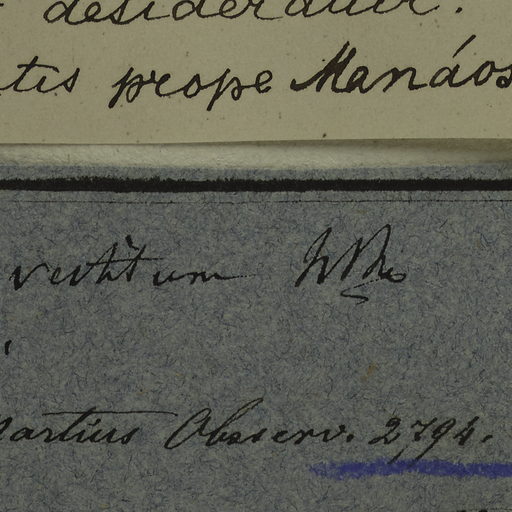 desideratur.
tis prope Manáos
vestitum
artius Observ. 2794.